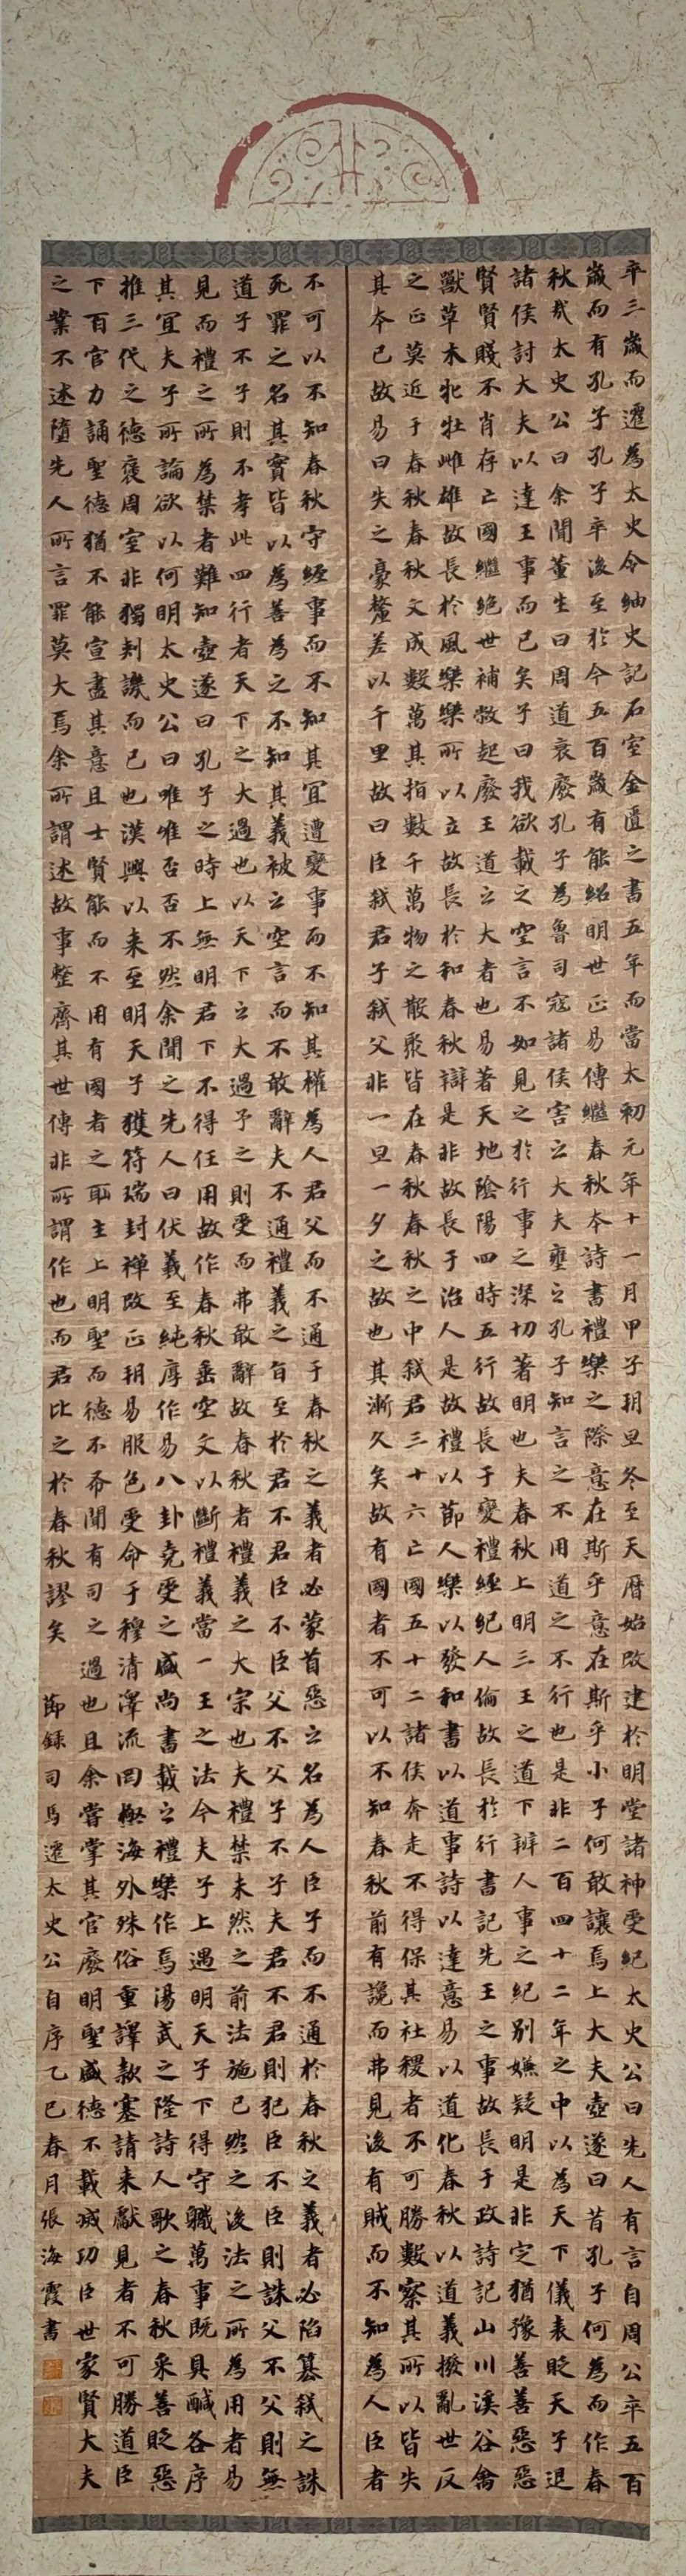 卒三歲而遷為太史令紬史記石室金匱之書五年而當太初元年十一月甲子朔旦冬至天曆始改建於明堂諸神受紀太史公曰先人有言自周公卒五百
歲而有孔子孔子卒後至於今五百歲有能紹明世正易傳繼春秋本詩書禮樂之際意在斯乎意在斯乎小子何敢讓焉上大夫壺遂曰昔孔子何為而作春
秋哉太史公曰余聞董生曰周道衰廢孔子為魯司寇諸侯害之大夫壅之孔子知言之不用道之不行也是非二百四十二年之中以為天下儀表貶天子退
諸侯討大夫以達王事而已矣子曰我欲載之空言不如見之於行事之深切著明也夫春秋上明三王之道下辨人事之紀別嫌疑明是非定猶豫善善惡惡
賢賢賤不肖存亡國繼絕世補敝起廢王道之大者也易著天地陰陽四時五行故長于變禮經紀人倫故長於行書記先王之事故長于政詩記山川溪谷禽
獸草木牝牡雌雄故長於風樂樂所以立故長於和春秋辯是非故長于治人是故禮以節人樂以發和書以道事詩以達意易以道化春秋以道義撥亂世反
之正莫近于春秋春秋文成數萬其指數千萬物之散聚皆在春秋春秋之中弒君三十六亡國五十二諸侯奔走不得保其社稷者不可勝數察其所以皆失
其本已故易曰失之豪釐差以千里故曰臣弒君子弒父非一旦一夕之故也其漸久矣故有國者不可以不知春秋前有讒而弗見後有賊而不知為人臣者
不可以不知春秋守經事而不知其宜遭變事而不知其權為人君父而不通于春秋之義者必蒙首惡之名為人臣子而不通於春秋之義者必陷篡弒之誅
死罪之名其實皆以為善為之不知其義被之空言而不敢辭夫不通禮義之旨至於君不君臣不臣父不父子不子夫君不君則犯臣不臣則誅父不父則無
道子不子則不孝此四行者天下之大過也以天下之大過予之則受而弗敢辭故春秋者禮義之大宗也夫禮禁未然之前法施已然之後法之所為用者易
見而禮之所為禁者難知壺遂曰孔子之時上無明君下不得任用故作春秋垂空文以斷禮義當一王之法今夫子上遇明天子下得守職萬事既具咸各序
其宜夫子所論欲以何明太史公曰唯唯否否不然余聞之先人曰伏羲至純厚作易八卦堯舜之盛尚書載之禮樂作焉湯武之隆詩人歌之春秋采善貶惡
推三代之德褒周室非獨刺譏而已也漢興以來至明天子獲符瑞封禪改正朔易服色受命于穆清澤流罔極海外殊俗重譯款塞請來獻見者不可勝道臣
下百官力誦聖德猶不能宣盡其意且士賢能而不用有國者之恥主上明聖而德不布聞有司之過也且余嘗掌其官廢明聖盛德不載滅功臣世家賢大夫
之業不述墮先人所言罪莫大焉余所謂述故事整齊其世傳非所謂作也而君比之於春秋謬矣 節錄司馬遷太史公自序乙巳春月張海霞書